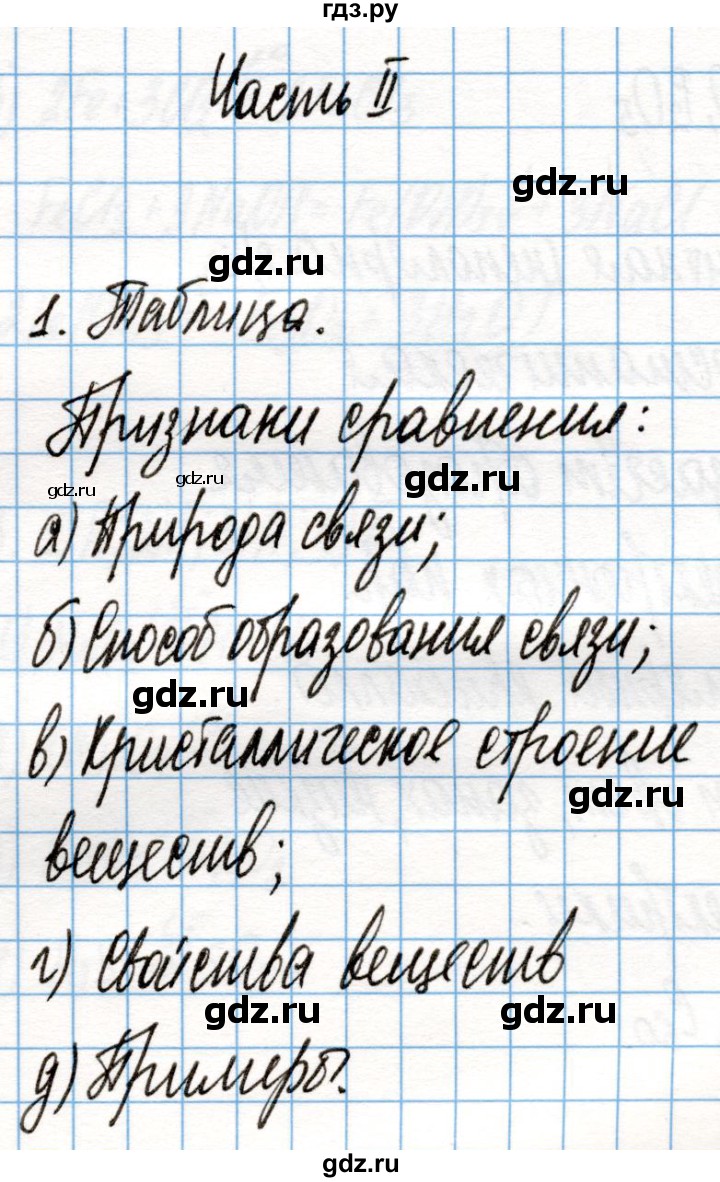 гдз.ру
Часть II
gdz.ru
gdz.ru
1. Таблица.
Признаки сравнения:
gdz.ru
gdz.ru
gdz.ru
а) Природа связи;
б) Способ образования связи;
gdz.ru
в) Кристаллическое строение
gdz.ru
веществ;
г) Свойства веществ
gdz.ru
gdz.ru
д) Примеры.
gdz.ru